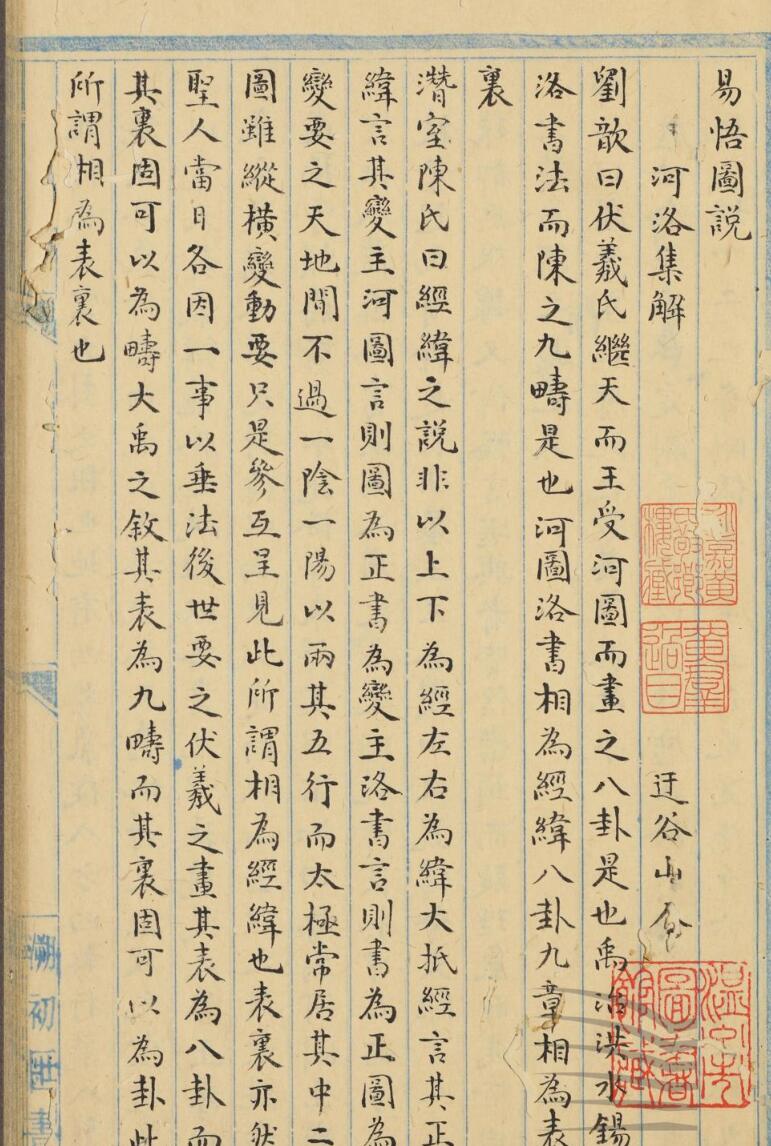 易悟圖說
河洛集解 迂谷山
劉歆曰伏羲氏繼天而王受河圖而畫之八卦是也禹治洪水錫
洛書法而陳之九疇是也河圖洛書相為經緯八卦九章相為表
裏
潛室陳氏曰經緯之說非以上下為經左右為緯大抵經言其正
緯言其變主河圖言則圖為正書為變主洛書言則書為正圖為
變要之天地間不過一陰一陽以兩其五行而太極常居其中二
圖雖縱橫變動要只是參互呈見此所謂相為經緯也表裏亦然
聖人當日各因一事以垂法後世要之伏羲之畫其表為八卦而
其裏固可以為疇大禹之敘其表為九疇而其裏固可以為卦此
所謂相為表裏也
溫州市圖書館藏
黃羣